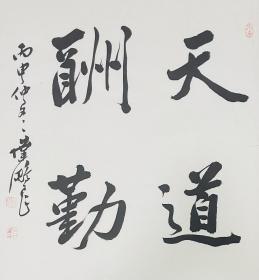 天道
酬勤
丙申仲冬